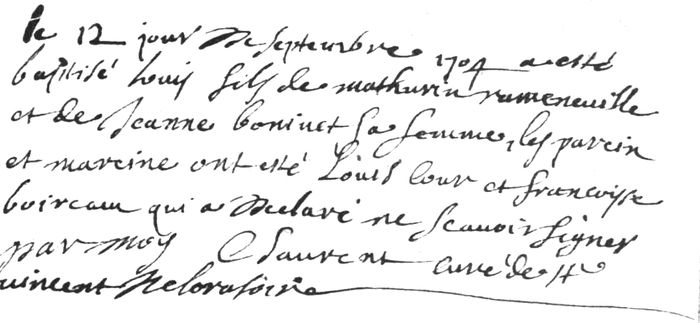 le 12 jour de septembre 1704 a esté
baptisé louis fils de mathurin rameneuille
et de Jeanne boninet sa femme, les parein
et mareine ont esté Louis lour et francoise
boireau qui a declaré ne scauoir signer
par moy Laurent curé de st
uincent de loratoire